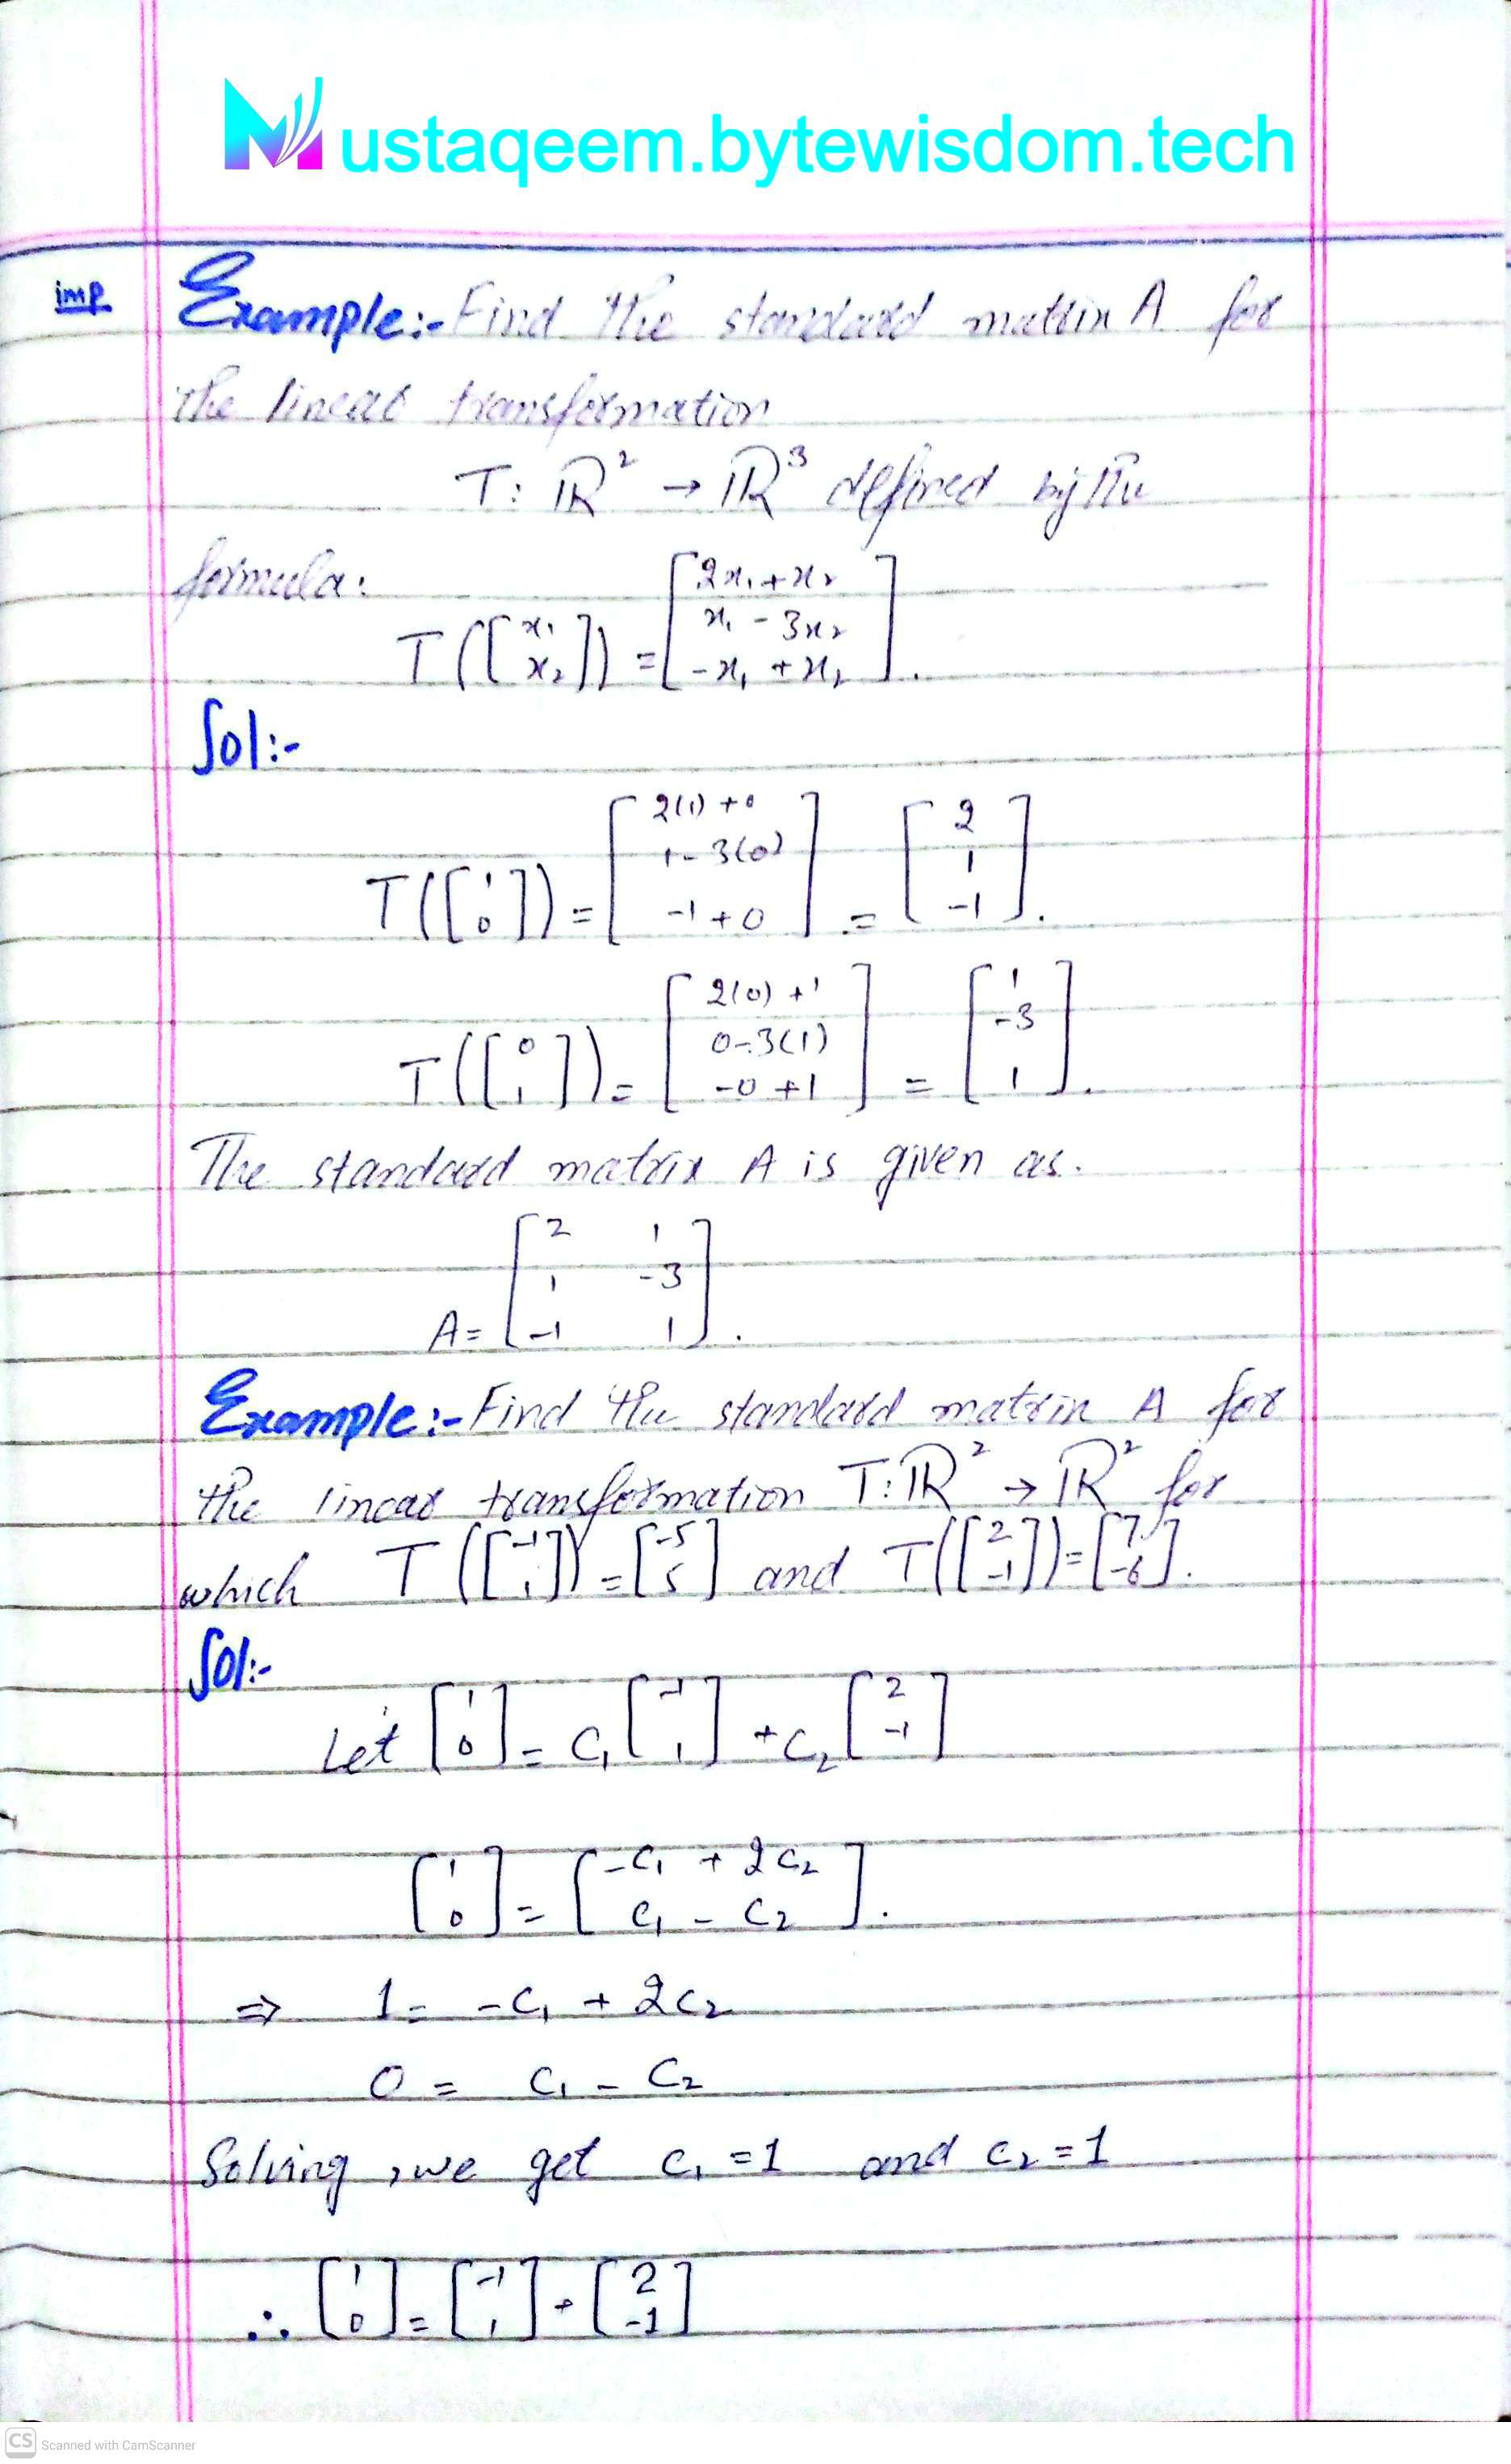 Mustaqeem.bytewisdom.tech
imp Example:- Find the standard matrix A for
the linear transformation
T: ℝ² → ℝ³ defined by the
formula:
T([x₁ x₂]) = [2x₁ + x₂
x₁ - 3x₂
-x₁ + x₂].
Sol:-
T([1 0]) = [2(1) + 0
1 - 3(0)
-1 + 0] = [2
1
-1].
T([0 1]) = [2(0) + 1
0 - 3(1)
-0 + 1] = [1
-3
1].
The standard matrix A is given as.
A = [2 1
1 -3
-1 1].
Example:- Find the standard matrix A for
the linear transformation T: ℝ² → ℝ² for
which T([-1 1]) = [-5 5] and T([2 -1]) = [7 -6].
Sol:-
Let [1 0] = c₁[-1 1] + c₂[2 -1]
[1 0] = [-c₁ + 2c₂
c₁ - c₂].
⇒ 1 = -c₁ + 2c₂
0 = c₁ - c₂
Solving, we get c₁ = 1 and c₂ = 1
∴ [1 0] = [-1 1] + [2 -1]
CS Scanned with CamScanner